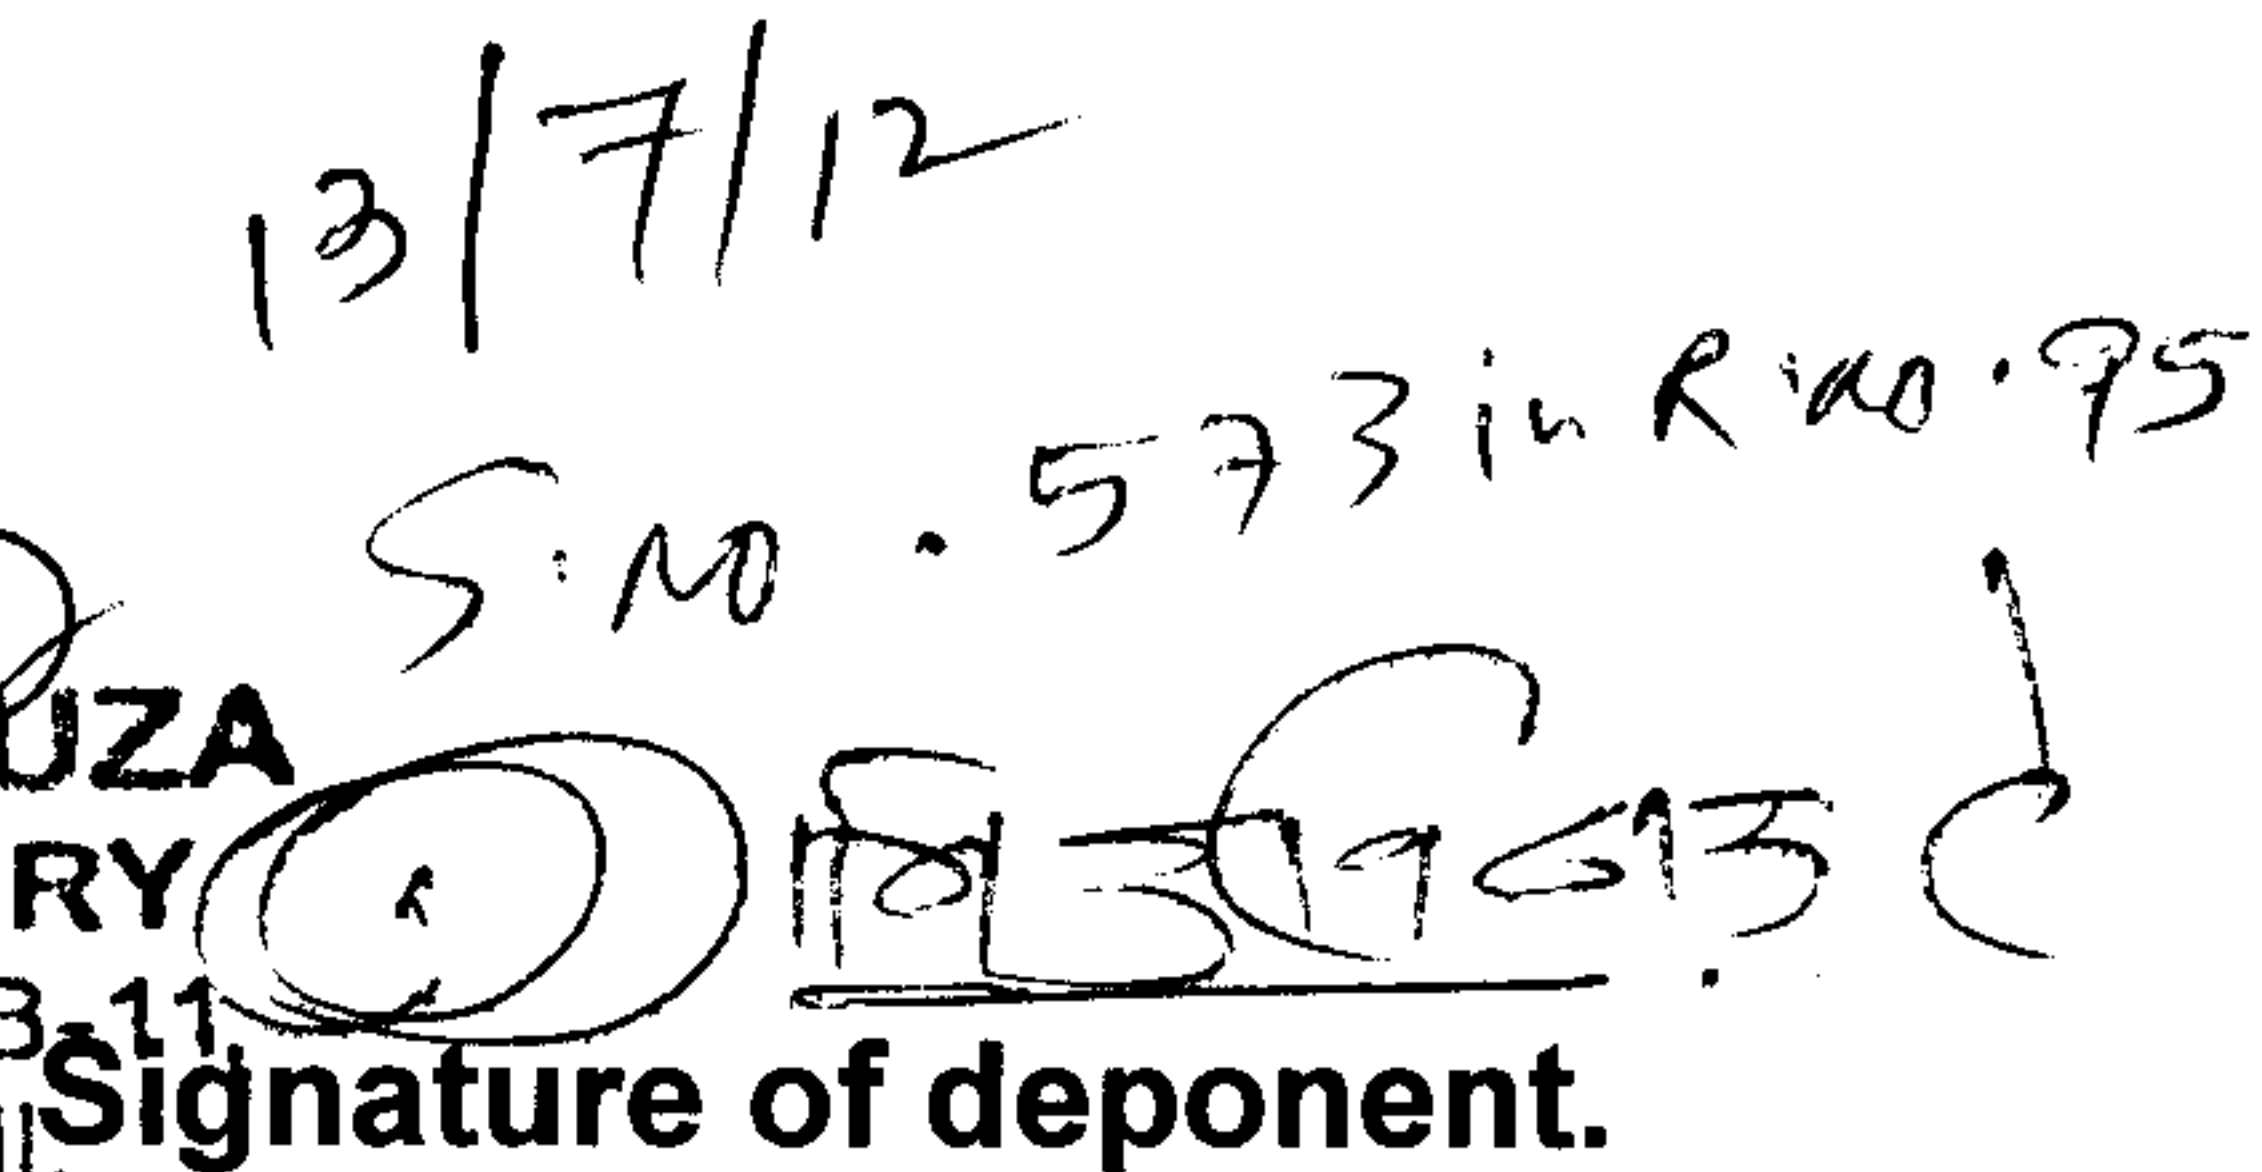 13/7/12
S.No. 573 in R.No. 95
UZA
RY
3-11
Signature of deponent.